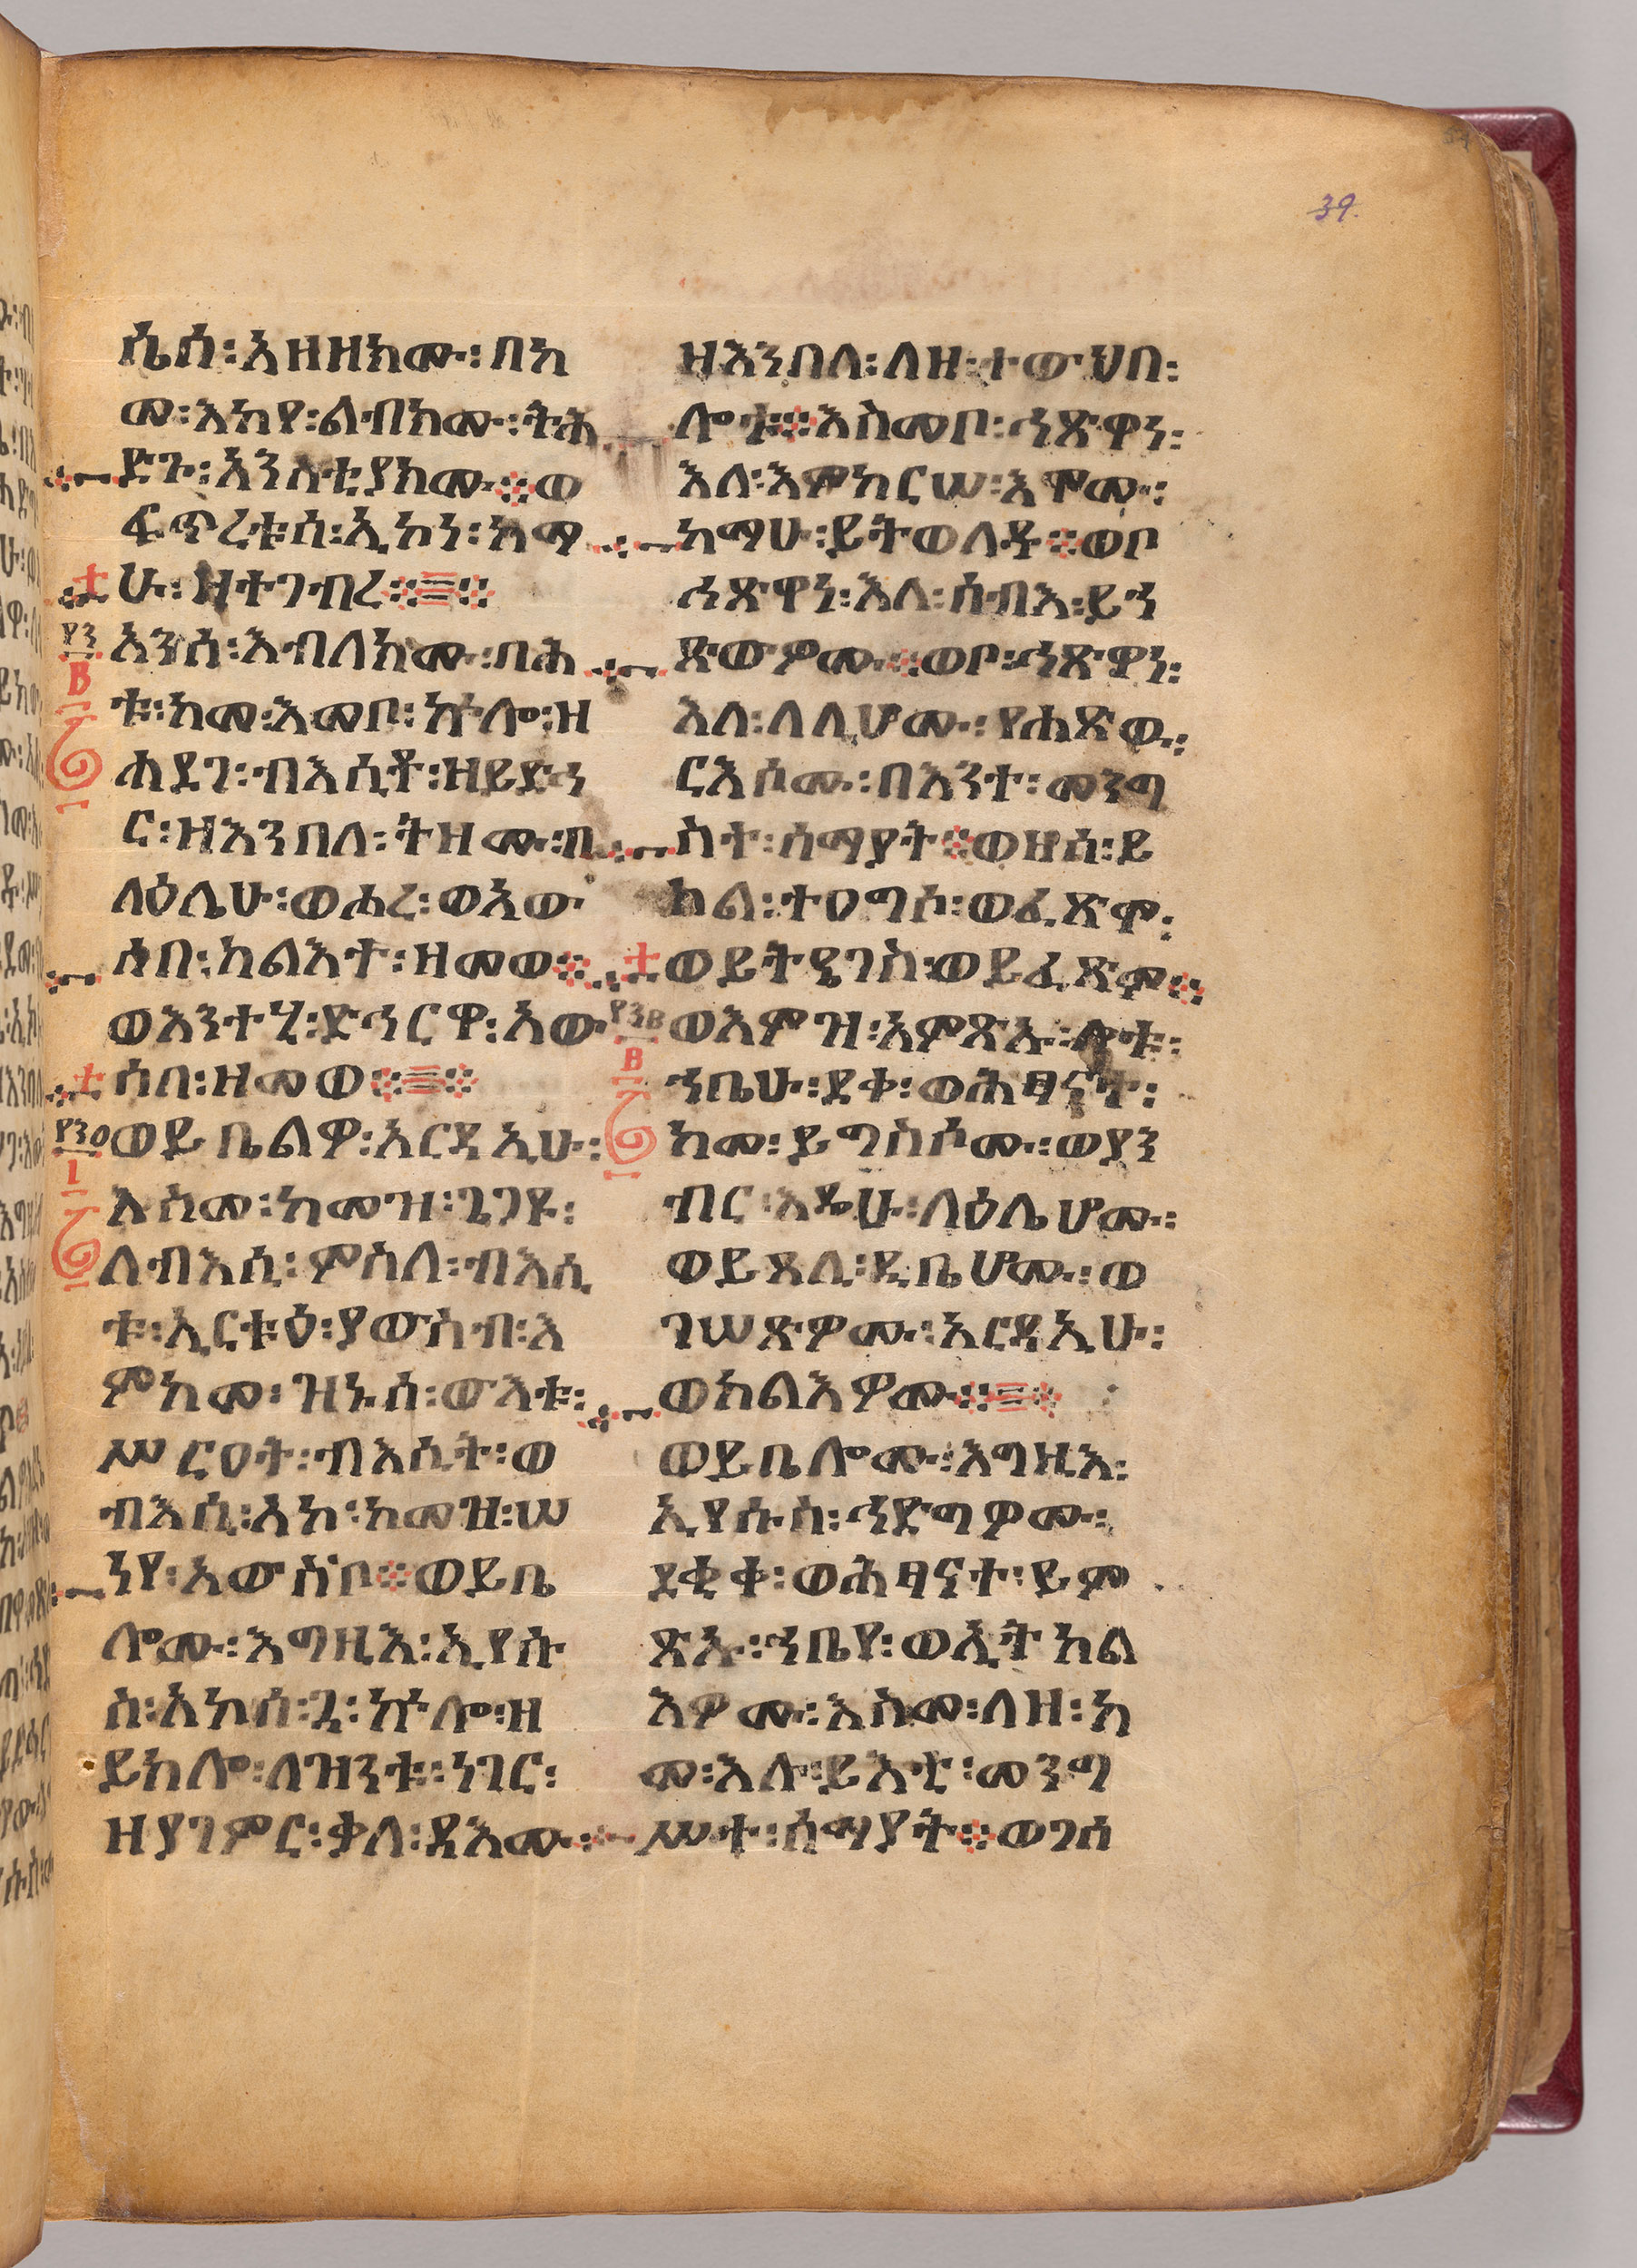 39.
ሴሰ፡አዘዘክሙ፡በአ
መ፡እከየ፡ልብክሙ፡ትሕ
ድጉ፡አንስቲያክሙ፨ወ
ፍጥረቱሰ፡ኢኮነ፡ከማ
ሁ፡ዝተገብረ፨፨
አንሰ፡እብለክሙ፡በሕ
ቱ፡ከመ፡አመቦ፡ኵሎ፡ዘ
ሐደገ፡ብእሲቶ፡ዘይድኅ
ር፡ዘእንበለ፡ትዘሙ፡በ
ላዕሌሁ፡ወሐረ፡ወአው
ሰበ፡ካልእተ፡ዘመወ፨
ወእንተሂ፡ድኅርዋ፡አው
ሰበ፡ዘመወ፨፨
ወይቤልዎ፡አርዳኢሁ፡
እስመ፡ከመዝ፡ጌጋዩ፡
ለብእሲ፡ምስለ፡ብእሲ
ቱ፡ኢርቱዕ፡ያውስብ፡እ
ምከመ፡ዝኑሰ፡ውእቱ፡
ሥርዐት፡ብእሲት፡ወ
ብእሲ፡አኮ፡ከመዝ፡ሠ
ንየ፡አውስቦ፨ወይቤ
ሎሙ፡እግዚእ፡ኢየሱ
ስ፡አኮሰ፡ጊ፡ኵሎ፡ዘ
ይክሎ፡ለዝንቱ፡ነገር፡
ዘያገምር፡ቃለ፡ዳእሙ፨
ዝእንበለ፡ለዘ፡ተውህበ፡
ሎቱ፨እስመቦ፡ኅጽዋን፡
እለ፡እምከርሠ፡እሞሙ፡
ከማሁ፡ይትወለዱ፨ወቦ
ኅጽዋነ፡እለ፡ሰብእ፡ይኅ
ጽውዎሙ፨ወቦ፡ኅጽዋነ፡
እለ፡ለሊሆሙ፡የሐጽዉ፡
ርእሶሙ፡በእንተ፡መንግ
ስተ፡ሰማያት፨ወዘሰ፡ይ
ክል፡ተዐግሶ፡ወፈጽሞ፡
ወይትዔገስ፡ወይፈጽም፨
ወእምዝ፡አምጽኡ፡ሎቱ፡
ኀቤሁ፡ደቀ፡ወሕፃናት፡
ከመ፡ይግስሶሙ፡ወያን
ብር፡እዴሁ፡ላዕሌሆሙ፡
ወይጸሊ፡ዲቤሆሙ፡ወ
ገሠጽዎሙ፡አርዳኢሁ፡
ወከልእዎሙ፨፨
ወይቤሎሙ፡እግዚእ፡
ኢየሱስ፡ኅድግዎሙ፡
ደቂቀ፡ወሕፃናተ፡ይም
ጽኡ፡ኀቤየ፡ወኢትክል
እዎሙ፡እስመ፡ለዘ፡ከ
መ፡እሉ፡ይእቲ፡መንግ
ሥተ፡ሰማያት፨ወገሰ